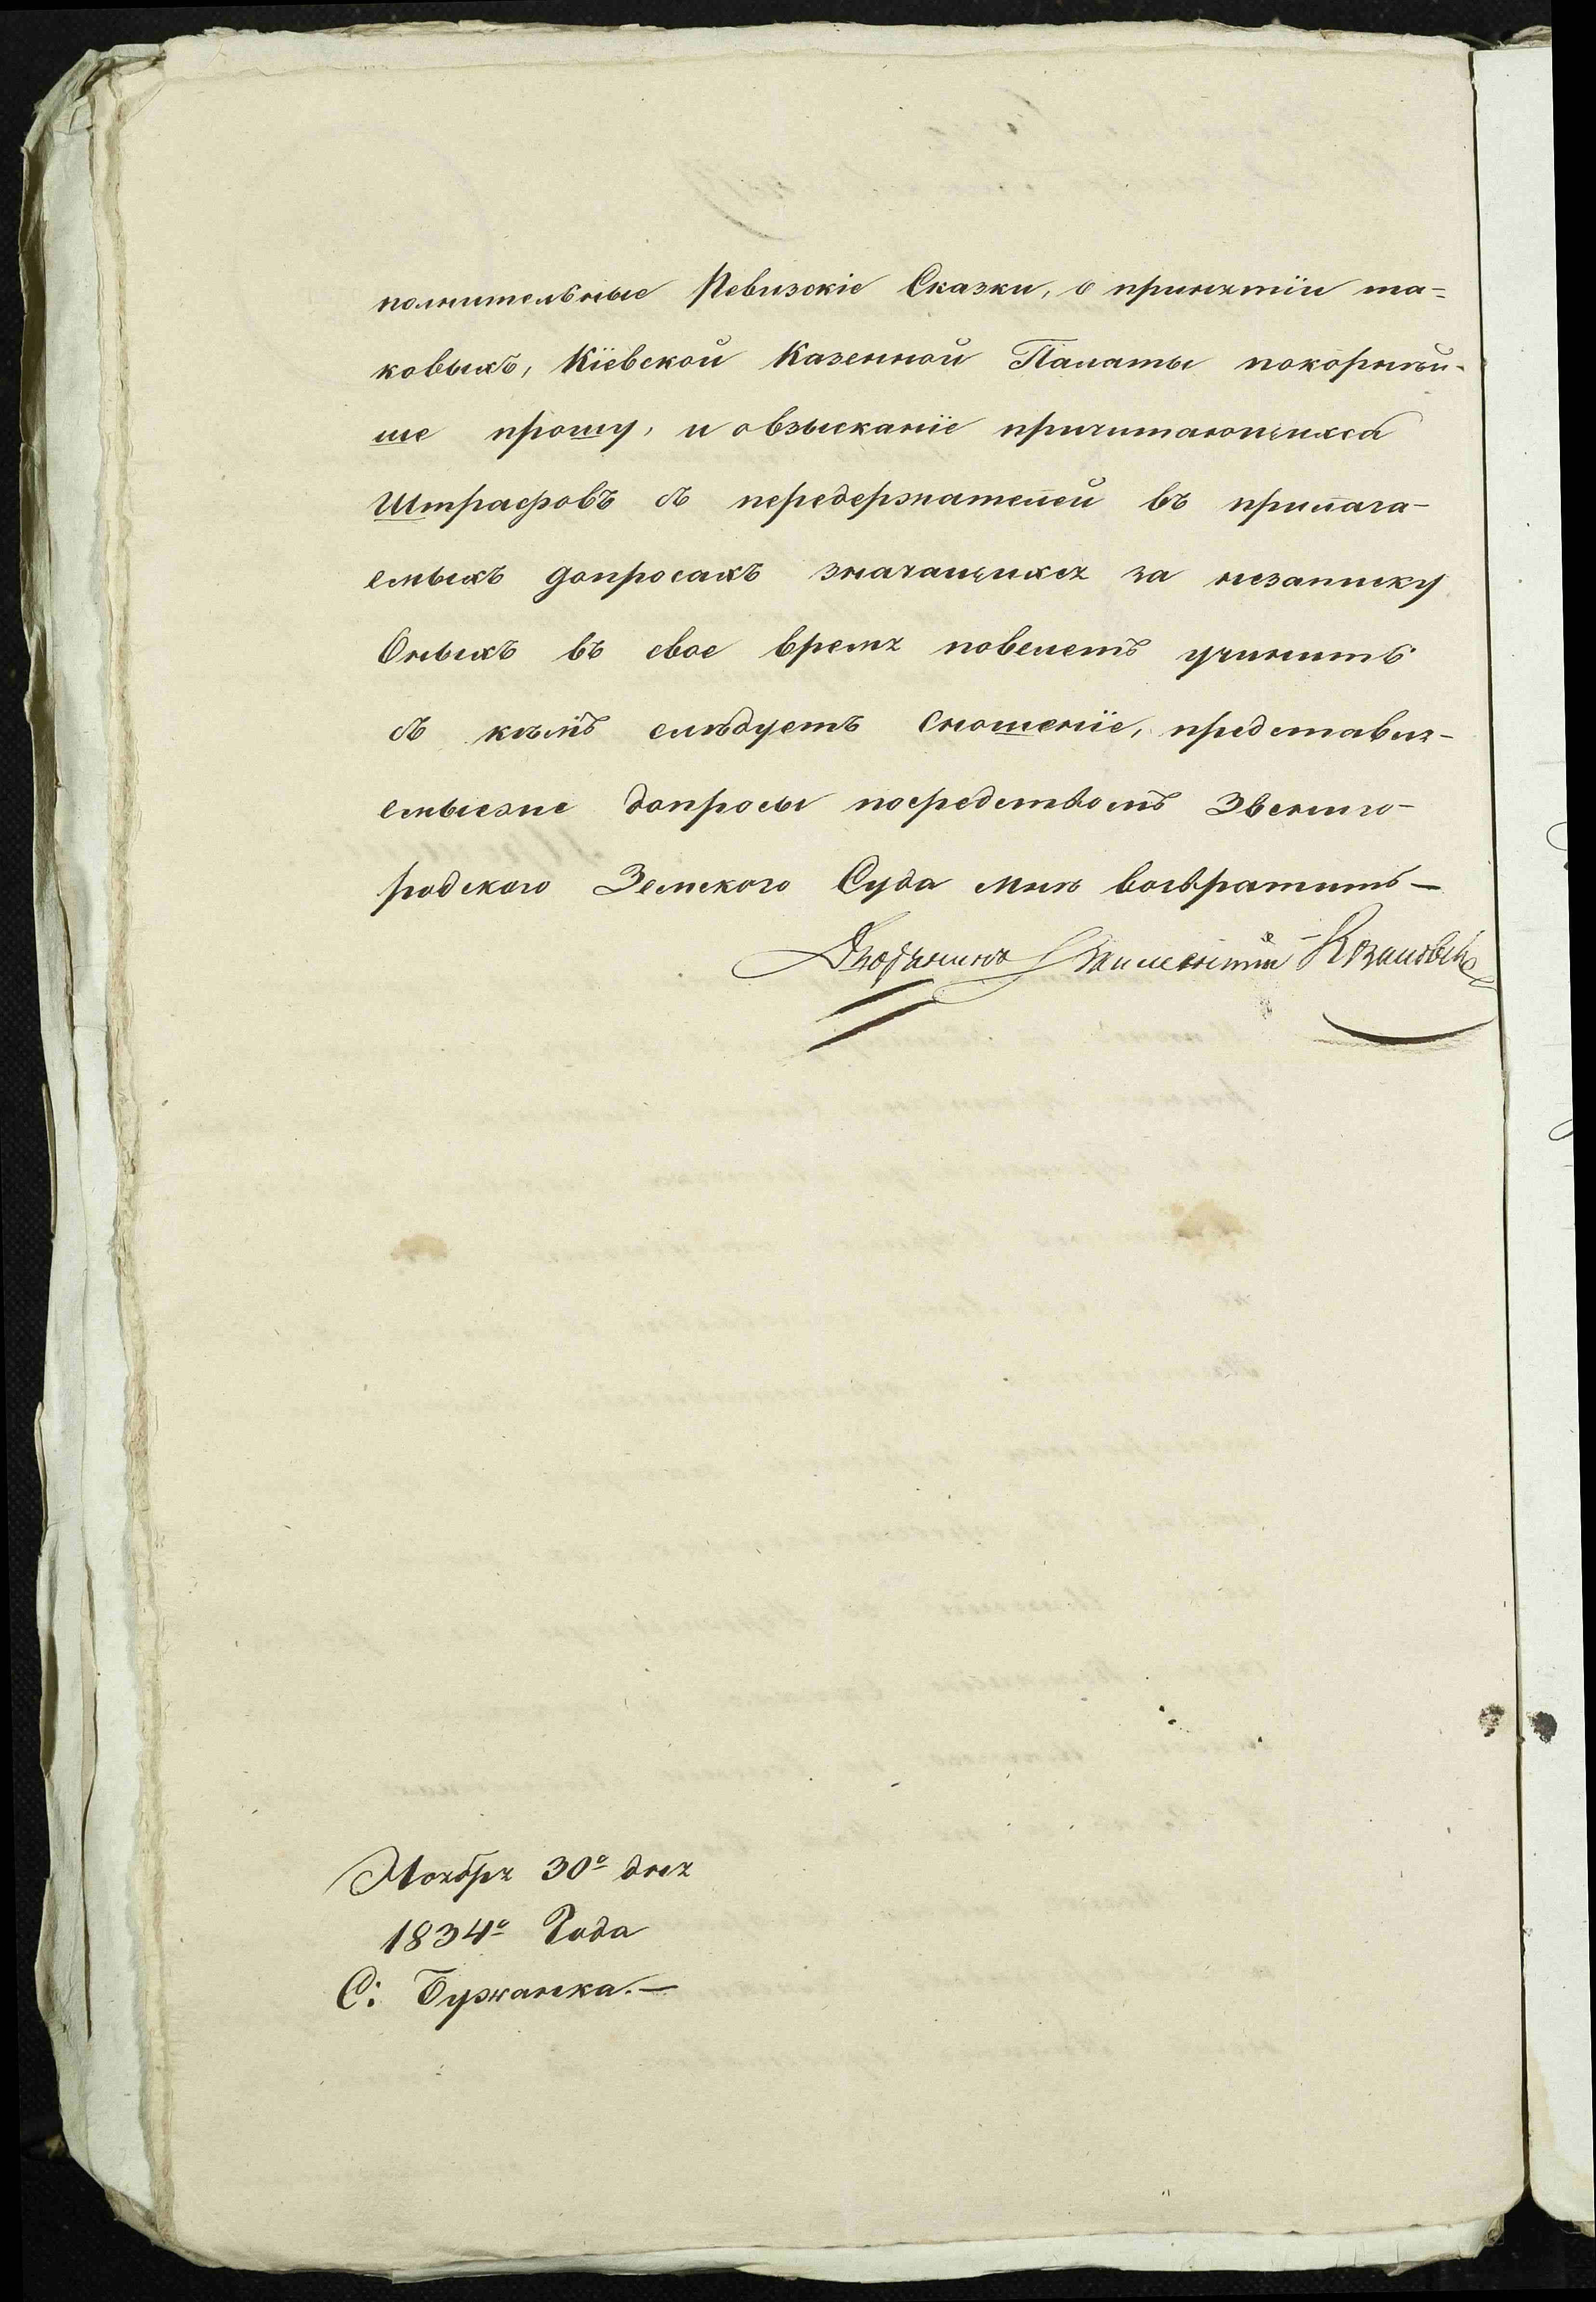 полнительные Ревизскіе Сказки, о принятіи та=
ковыхъ, Кіевской Казенной Палаты покорнѣй-
ше прошу, и овзысканіе причитающихся
Штрафовъ съ передержателей въ прилага-
емыхъ допросахъ значащихся за незаписку
Оныхъ въ свое время повелеть учинить
съ кѣмъ слѣдуетъ сношеніе, представля-
емыеже допросы посредствомъ Звениго-
родского Земского Суда мнѣ возвратить—
Дворянинъ Козловскій
Ноября 30го дня
1834го Года
С: Бужанка.—